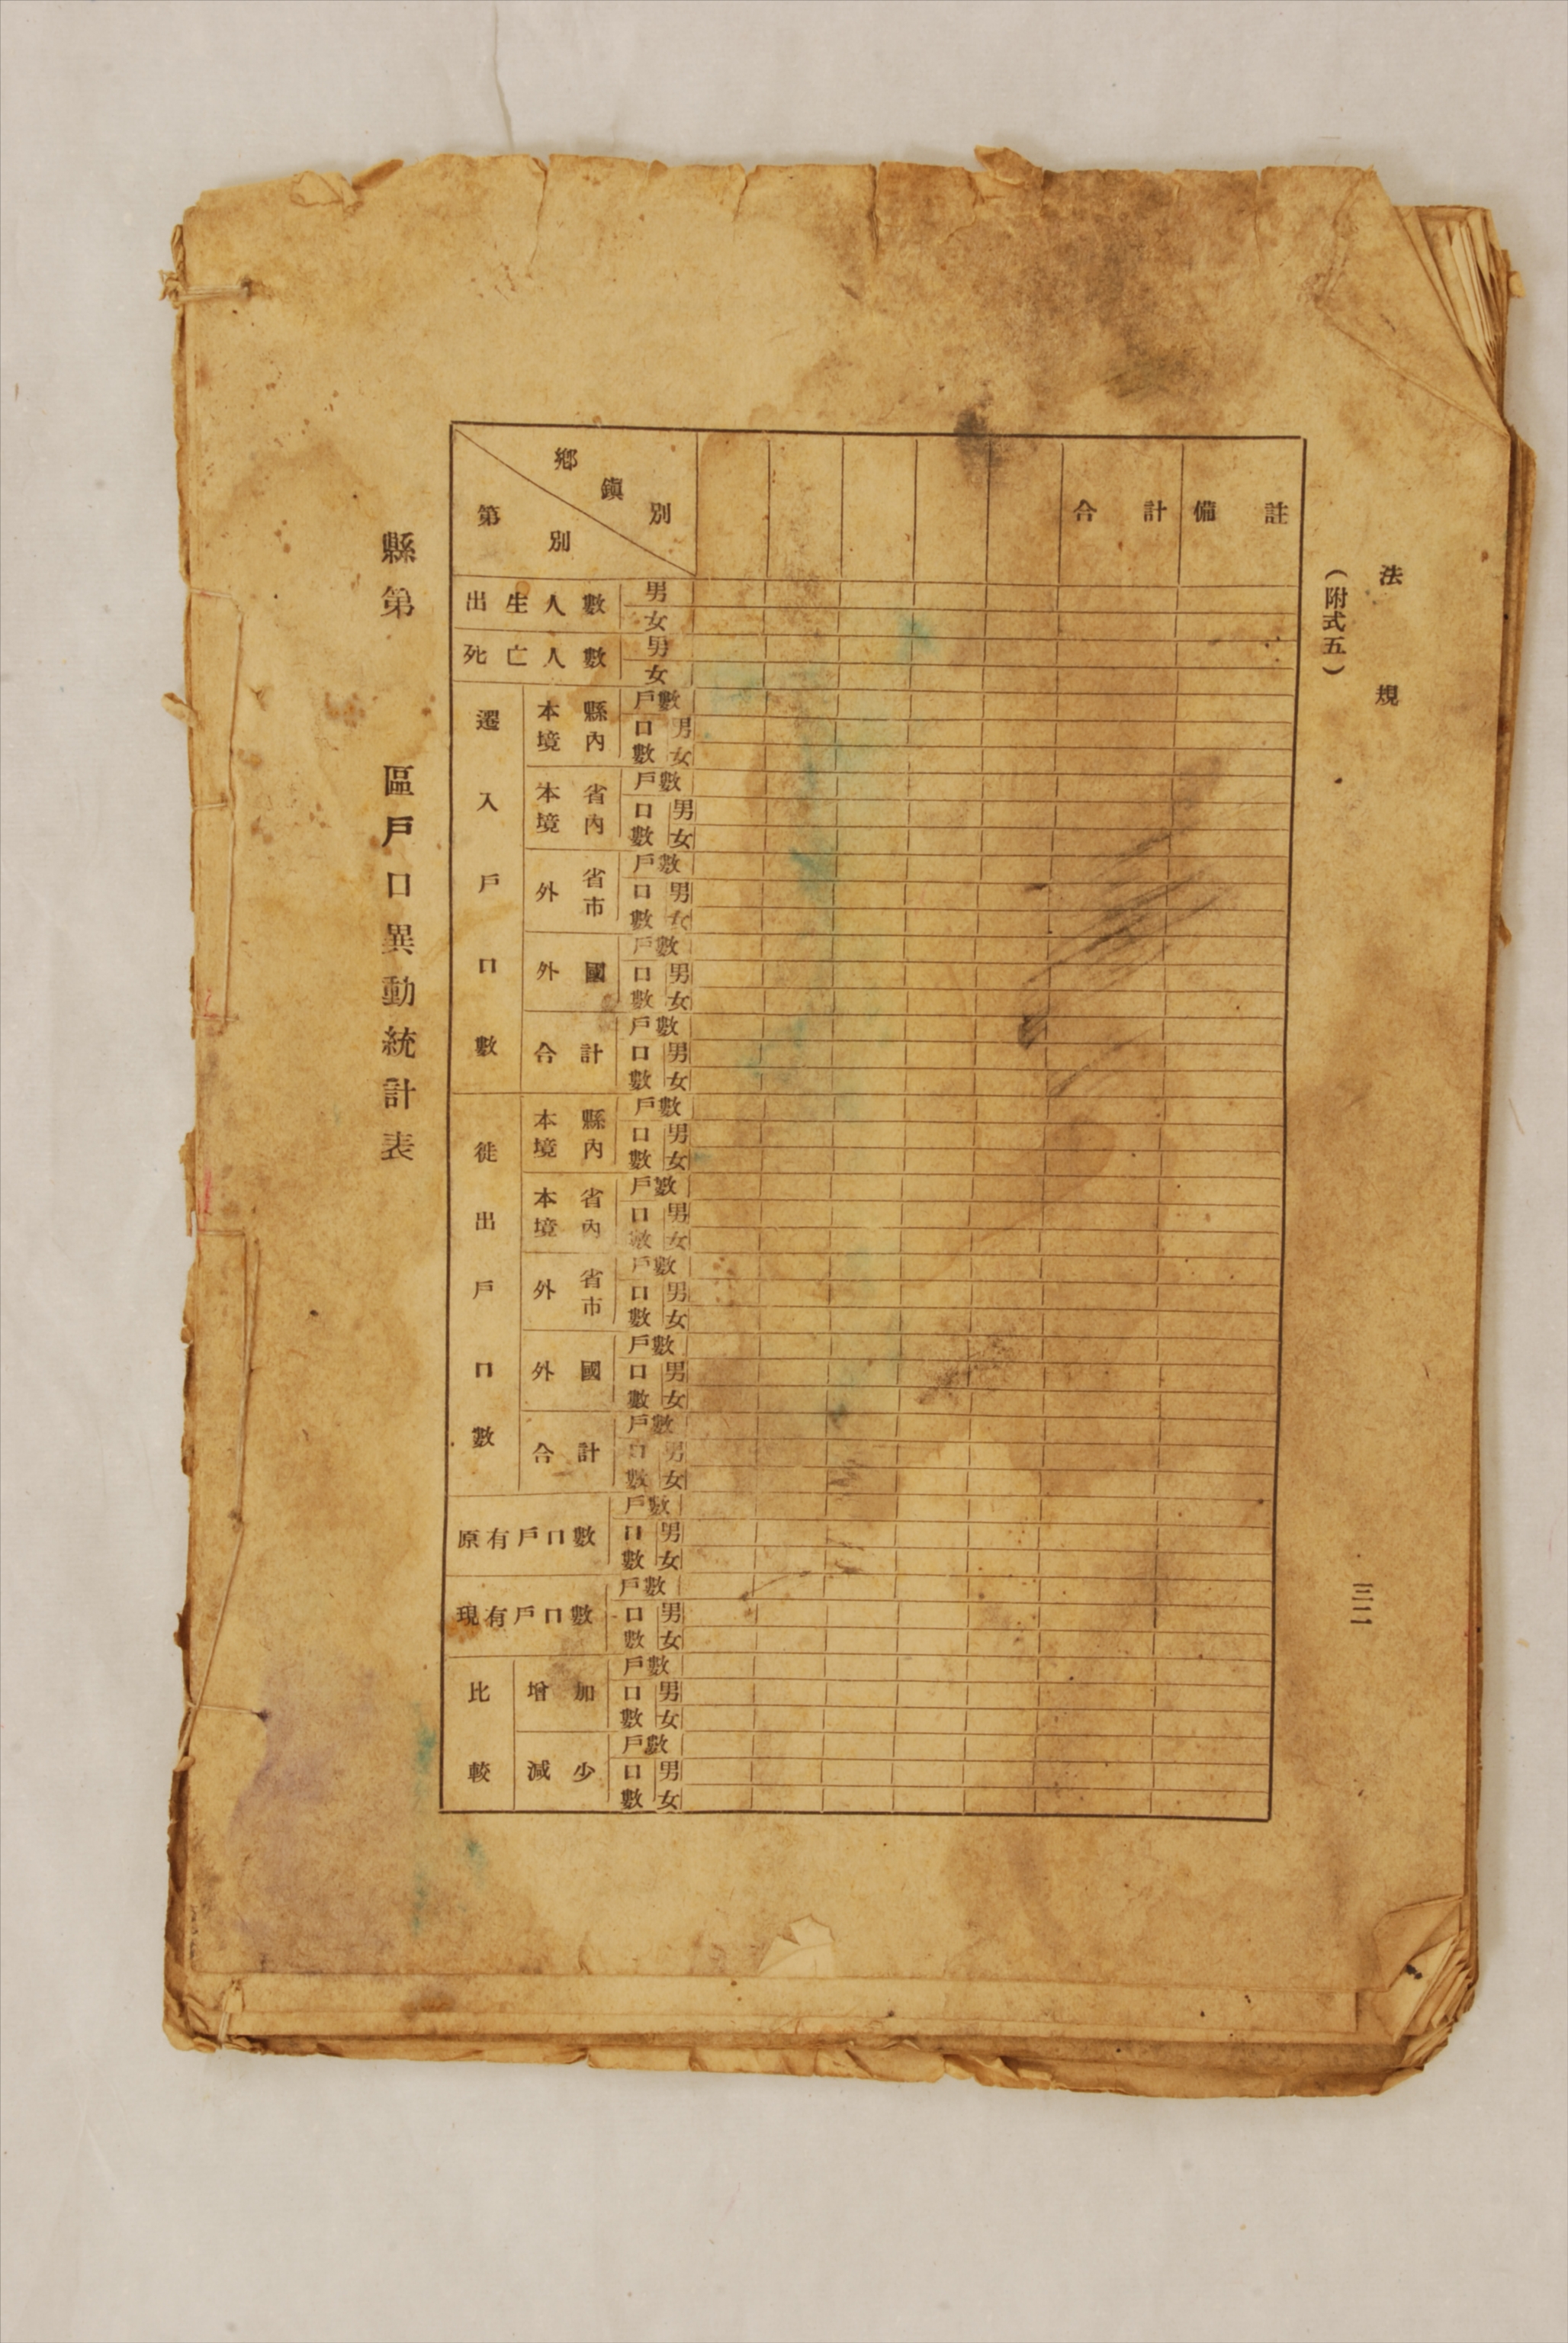 法規
三二
（附式五）
縣第　區戶口異動統計表
鄉鎭別
第別
合計
備註
出生人數
男
女
死亡人數
男
女
遷入戶口數
本境縣內
戶數
口數
男
女
本境省內
戶數
口數
男
女
外省市
戶數
口數
男
女
外國
戶數
口數
男
女
合計
戶數
口數
男
女
徙出戶口數
本境縣內
戶數
口數
男
女
本境省內
戶數
口數
男
女
外省市
戶數
口數
男
女
外國
戶數
口數
男
女
合計
戶數
口數
男
女
原有戶口數
戶數
口數
男
女
現有戶口數
戶數
口數
男
女
比較
增加
戶數
口數
男
女
減少
戶數
口數
男
女